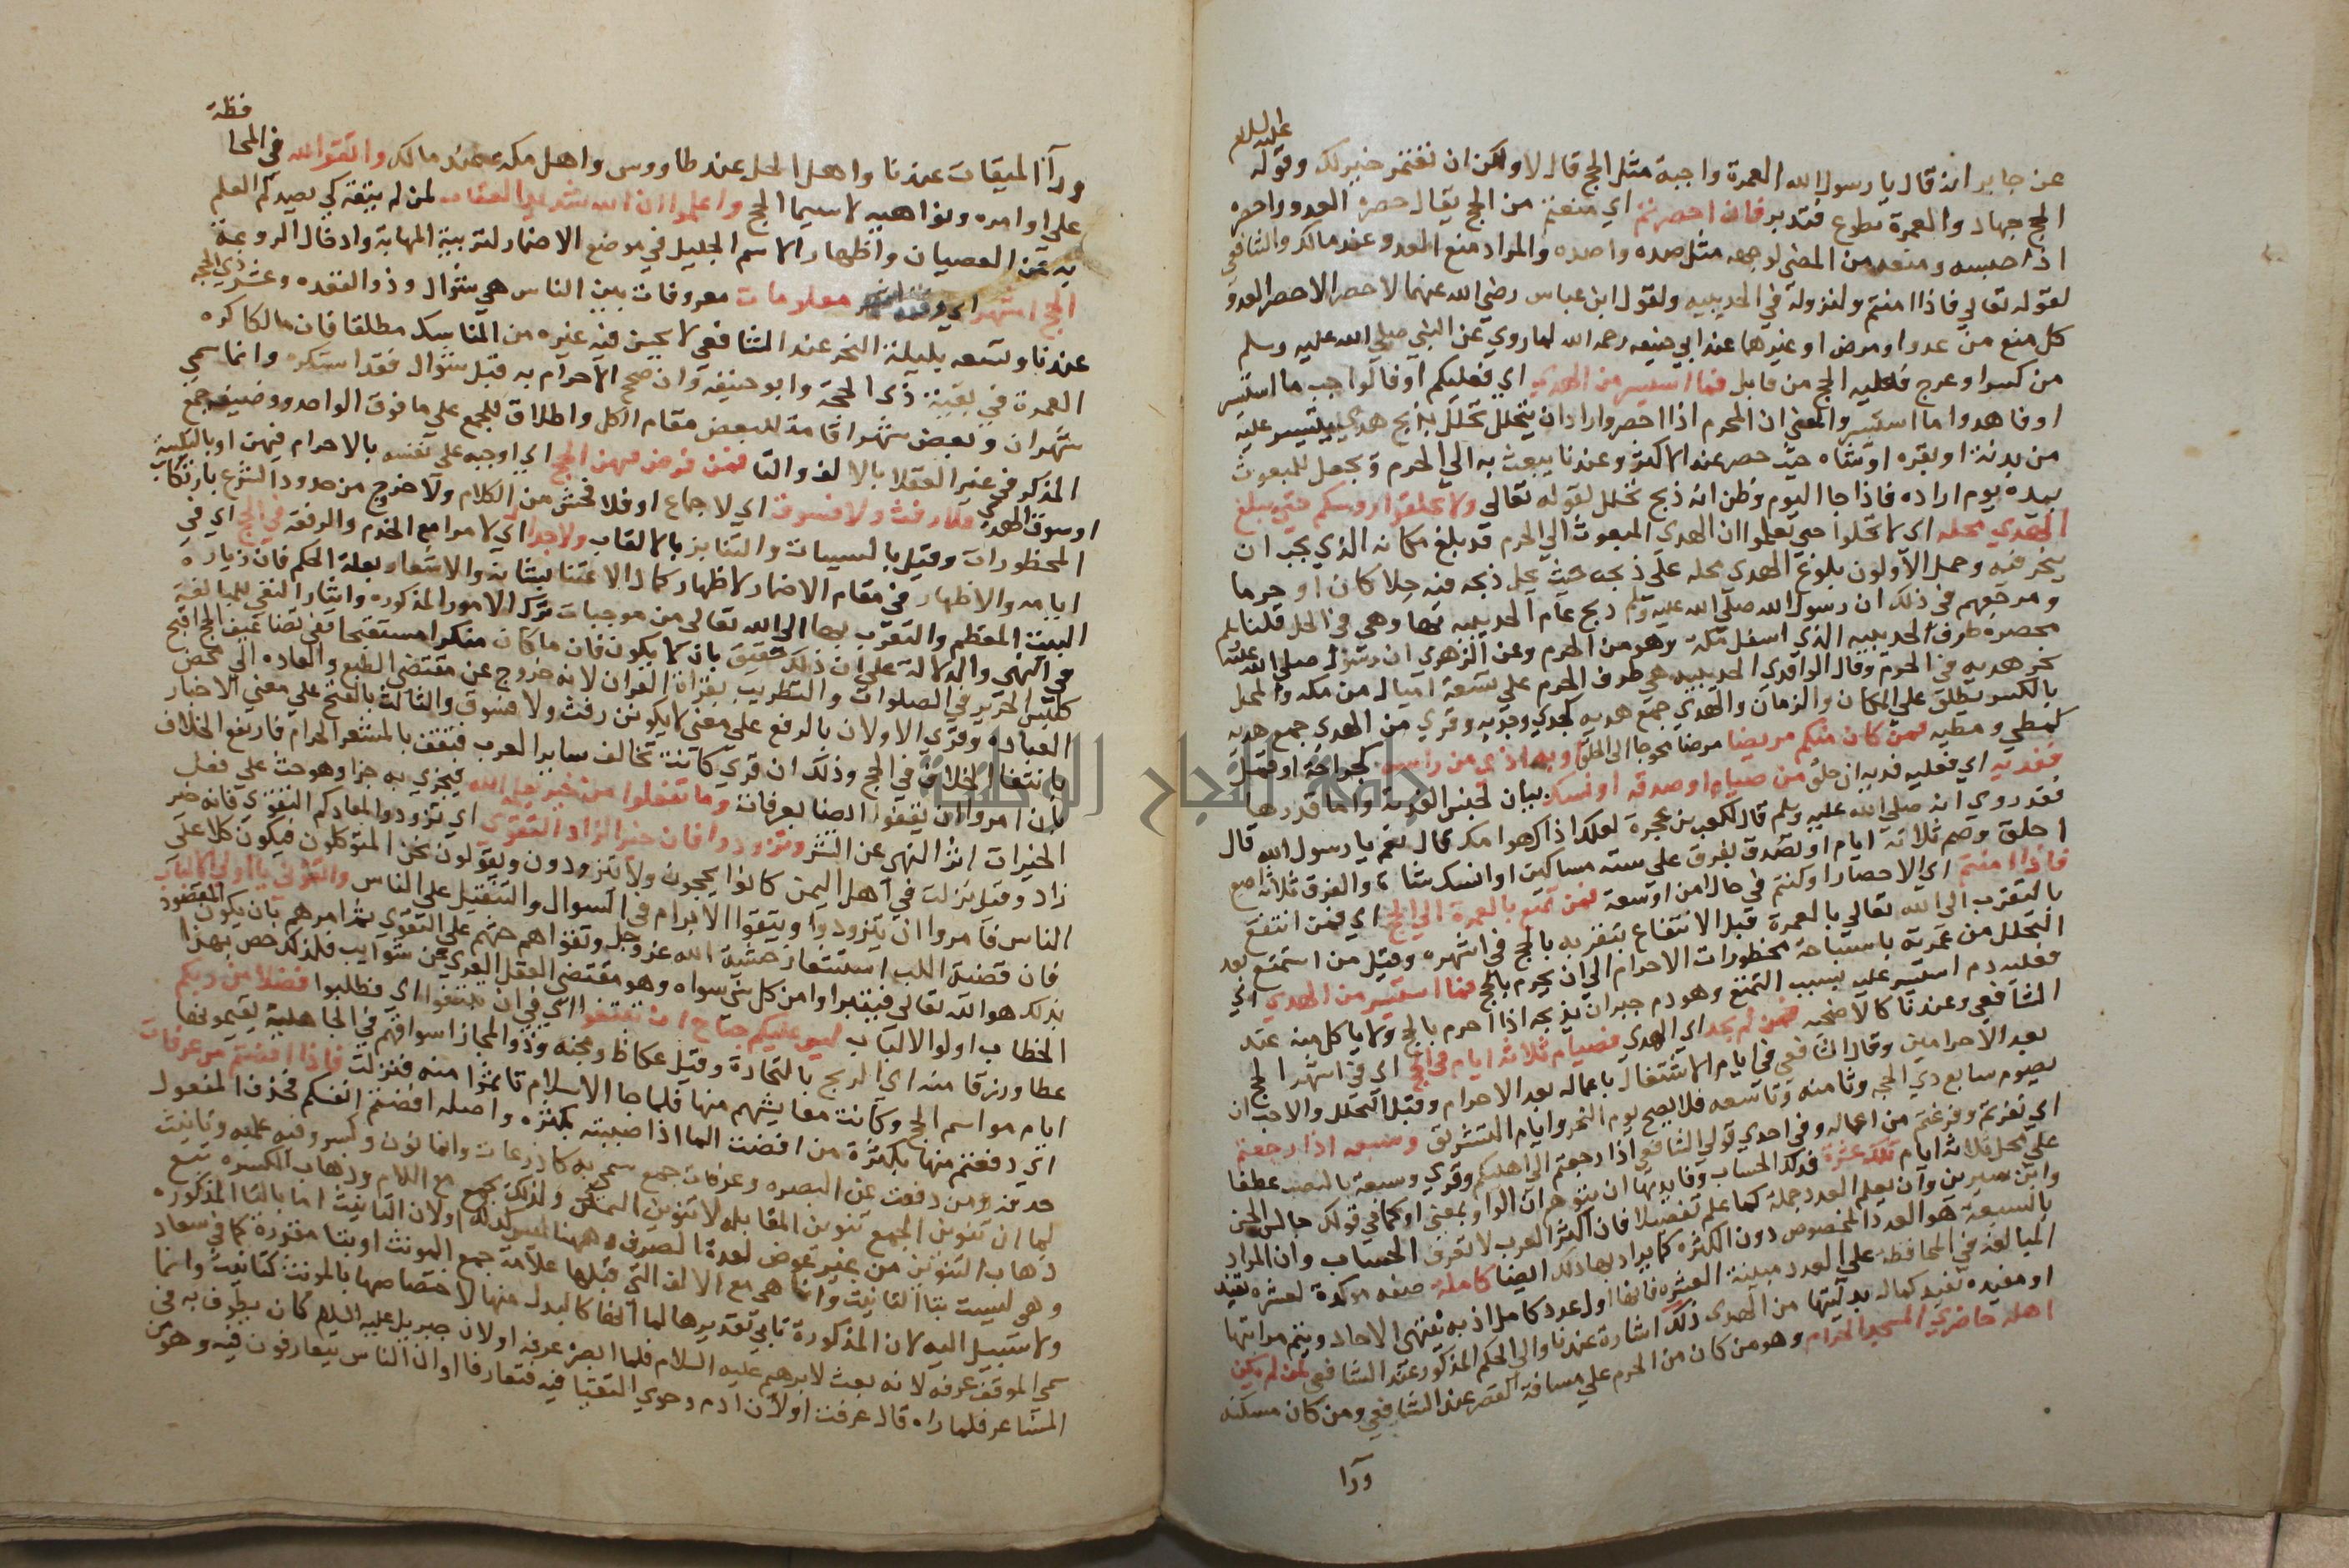 عليه السلام
عن جابر انه قال يا رسول الله العمرة واجبة مثل الحج قال لا ولكن ان تعتمر خير لك وقوله
الحج جهاد والعمرة تطوع فتدبر فان احصرتم اي منعتم من الحج يقال حصره العدو واحصره
اذا حبسه ومنعه من المضي لوجهه مثل صده واصده والمراد منع العدو عند مالك والشافعي
لقوله تعالي فاذا امنتم ولنزوله في الحديبيه ولقول ابن عباس رضي الله عنهما لا حصر الا حصر العدو
كل منع من عدو او مرض او غيرهما عند ابي حنيفه رحمه الله لما روي عن النبي صلي الله عليه وسلم
من كسر او عرج فعليه الحج من قابل فما استيسر من الهدي اي فعليكم او فالواجب ما استيسر
او فاهدوا ما استيسر والمعني ان المحرم اذا احصر واراد ان يتحلل تحلل بذبح هدي تيسر عليه
من بدنة او بقره او شاه حيث حصر عند الاكثر وعندنا يبعث به الي الحرم ويجعل للمبعوث
بيده يوم اراده فاذا جا اليوم وظن انه ذبح تحلل لقوله تعالي ولا تحلقوا روسكم حتي يبلغ
الهدي محله اي لا تحلوا حتي تعلموا ان الهدي المبعوث الي الحرم قد بلغ مكانه الذي يجب ان
ينحر فيه وحمل الاولون بلوغ الهدي محله علي ذبحه حيث يحل ذبحه فيه حلا كان او حرما
ومرجعهم في ذلك ان رسول الله صلي الله عليه وسلم ذبح عام الحديبيه بها وهي في الحل قلنا
محصره طرف الحديبيه الذي اسفل مكة وهو من الحرم وعن الزهري ان رسول الله صلي الله عليه وسلم
نحر هديه في الحرم وقال الواقدي الحديبيه هي طرف الحرم علي تسعة اميال من مكه والمحل
بالكسر يطلق علي المكان والزمان والهدي جمع هدية كجدي وجدية وقري من الهدي جمع هدية
كمطي ومطيه فمن كان منكم مريضا مرضا يحوجه الي الحلق او به اذي من راسه كجراحة او قمل
ففدية اي فعليه فدية ان حلق من صيام او صدقة او نسك بيان لجنس الفدية واما قدرها
فقد روي انه صلي الله عليه وسلم قال لكعب بن عجرة لعلك اذاك هوامك قال نعم يا رسول الله قال
احلق وصم ثلاثة ايام او تصدق بفرق علي ستة مساكين او انسك شاة والفرق ثلاثة اصع
فاذا امنتم اي الاحصار او كنتم في حال امن او سعة فمن تمتع بالعمرة الي الحج اي فمن انتفع
بالتقرب الي الله تعالي بالعمرة قبل الانتفاع بتقربه بالحج في اشهره وقيل من استمتع بعد
التحلل من عمرته باستباحة محظورات الاحرام الي ان يحرم بالحج فما استيسر من الهدي اي
فعليه دم استيسر عليه بسبب التمتع وهو دم جبران يذبحه اذا احرم بالحج ولا ياكل منه عند
الشافعي وعندنا كالاضحيه فمن لم يجد اي الهدي فصيام ثلاثة ايام في الحج اي في اشهر الحج
بعد الاحرامين وقال الشافعي في ايام الاشتغال باعماله بعد الاحرام وقبل التحلل والاحب ان
يصوم سابع ذي الحجه وثامنه وتاسعه فلا يصح يوم النحر وايام التشريق وسبعه اذا رجعتم
اي نفرتم وفرغتم من اعماله وفي احدي قولي الشافعي اذا رجعتم الي اهليكم وقري وسبعة بالنصب عطفا
علي محل ثلاثة ايام تلك عشرة فذلكة الحساب وفايدتها ان لا يتوهم ان الواو بمعني او كما في قولك جالس الحسن
وابن سيرين وان يعلم العدد جملة كما علم تفصيلا فان اكثر العرب لا تعرف الحساب وان المراد
بالسبعة هو العدد المخصوص دون الكثرة كما يراد بها ذلك ايضا كاملة صفة موكدة لعشرة تفيد
المبالغة في المحافظة علي العدد مبينة العشرة فانها اول عدد كامل اذ به تنتهي الاحاد ويتم مراتبها
او مفيده تفيد كمال بدليتها من الهدي ذلك اشارة عندنا والي الحكم المذكور عند الشافعي لمن لم يكن
اهله حاضري المسجد الحرام وهو من كان من الحرم علي مسافة القصر عند الشافعي ومن كان مسكنه
ورا
ورآ الميقات عندنا واهل الحل عند طاووس واهل مكه عند مالك واتقوا الله في المحا
فظة
علي اوامره ونواهيه لا سيما الحج واعلموا ان الله شديد العقاب لمن لم يتقه كي يصدكم العلم
به عن العصيان واظهار الاسم الجليل في موضع الاضمار لتربية المهابة وادخال الروعة
الحج اشهر اي وقته اشهر معلومات معروفات بين الناس هي شوال وذو القعده وعشر ذي الحجه
عندنا وتسعه بليلة النحر عند الشافعي لا يحسن فيه غيره من المناسك مطلقا فان مالكا كره
العمرة في بقية ذي الحجة وابو حنيفه وان صحح الاحرام به قبل شوال فقد استكره وانما سمي
شهران وبعض شهر اقامة للبعض مقام الكل واطلاق للجمع علي ما فوق الواحد وصيغة جمع
المذكر في غير العقلا بالالف والتا فمن فرض فيهن الحج اي اوجبه علي نفسه بالاحرام فيهن او بالتلبية
او سوق الهدي فلا رفث ولا فسوق اي لا جماع او فلا فحش من الكلام ولا خروج من حدود الشرع بارتكاب
المحظورات وقيل بالسيبات والتنابز بالالقاب ولا جدال اي لا مرا مع الخدم والرفقة في الحج اي في
ايامه والاظهار في مقام الاضمار لاظهار كمال الاعتنا بشانه والاشعار بعلة الحكم فان زيارة
البيت المعظم والتقرب بها الي الله تعالي من موجبات ترك الامور المذكوره وايثار النفي للمبالغة
في النهي والدلالة علي ان ذلك حقيق بان لا يكون فان ما كان منكرا مستقبحا في نفسه ففي الحج اقبح
كلبس الحرير في الصلوات والتطريب بقراة القران لانه خروج عن مقتضي الطبع والعاده الي محض
العباده وقري الاولان بالرفع علي معني لا يكونن رفث ولا فسوق والثالث بالفتح علي معني الاخبار
بانتفا الخلاف في الحج وذلك ان قريش كانت تخالف ساير العرب فتقف بالمشعر الحرام فارتفع الخلاف
بان امروا ان يقفوا ايضا بعرفات وما تفعلوا من خير يعلمه الله فيجزي به جزا وهو حث علي فعل
الخيرات اثر النهي عن الشر وتزودوا فان خير الزاد التقوي اي تزودوا لمعادكم التقوي فانه خير
زاد وقيل نزلت في اهل اليمن كانوا يحجون ولا يتزودون ويقولون نحن المتوكلون فيكون كلا علي
الناس فامروا ان يتزودوا ويتقوا الابرام في السوال والتثقيل علي الناس واتقون يا اولي الالباب
فان قضية اللب استتباع خشية الله عز وجل وتقواهم حثهم علي التقوي ثم امرهم بان يكون المقصود
بذلك هو الله تعالي فيتبراوا من كل شي سواه وهو مقتضي العقل العري عن شوايب فلذلك خص بهذا
الخطاب اولوا الالباب ليس عليكم جناح ان تبتغوا اي في ان تبتغوا اي تطلبوا فضلا من ربكم
عطا ورزقا منه اي الربح بالتجارة وقيل عكاظ ومجنه وذو المجاز اسواقهم في الجاهلية يقيمونها
ايام مواسم الحج وكانت معايشهم منها فلما جا الاسلام تاثموا منه فنزلت فاذا افضتم من عرفات
اي دفعتم منها بكثرة من افضت الما اذا صببته بكثره واصله افضتم انفسكم فحذف المفعول
حذفه من دفعت عن البصره وعرفات جمع سمي به كاذرعات وانما نون وكسر وفيه علميه وتانيث
لما ان تنوين الجمع تنوين المقابلة لا تنوين التمكن ولذلك يجمع مع اللام وذهاب الكسره تبع
ذهاب التنوين من غير عوض لعدم الصرف وههنا ليس كذلك او لان التانيث اما بالتا المذكوره
وهي ليست بتا التانيث وانما هي مع الالف التي قبلها علامة جمع المونث او بتا مقدرة كما في سعاد
ولا سبيل اليه لان المذكورة تابي تقديرها لما انها كالبدل منها لاختصاصها بالمونث كتا بنت وانما
سمي الموقف عرفه لانه نعت لابرهيم عليه السلام فلما ابصره عرفه او لان جبريل عليه السلام كان يطوف به في
المشاعر فلما راه قال عرفت او لان ادم وحوي التقتا فيه فتعارفا او ان الناس يتعارفون فيه وهو من
جامعة النجاح الوطنية